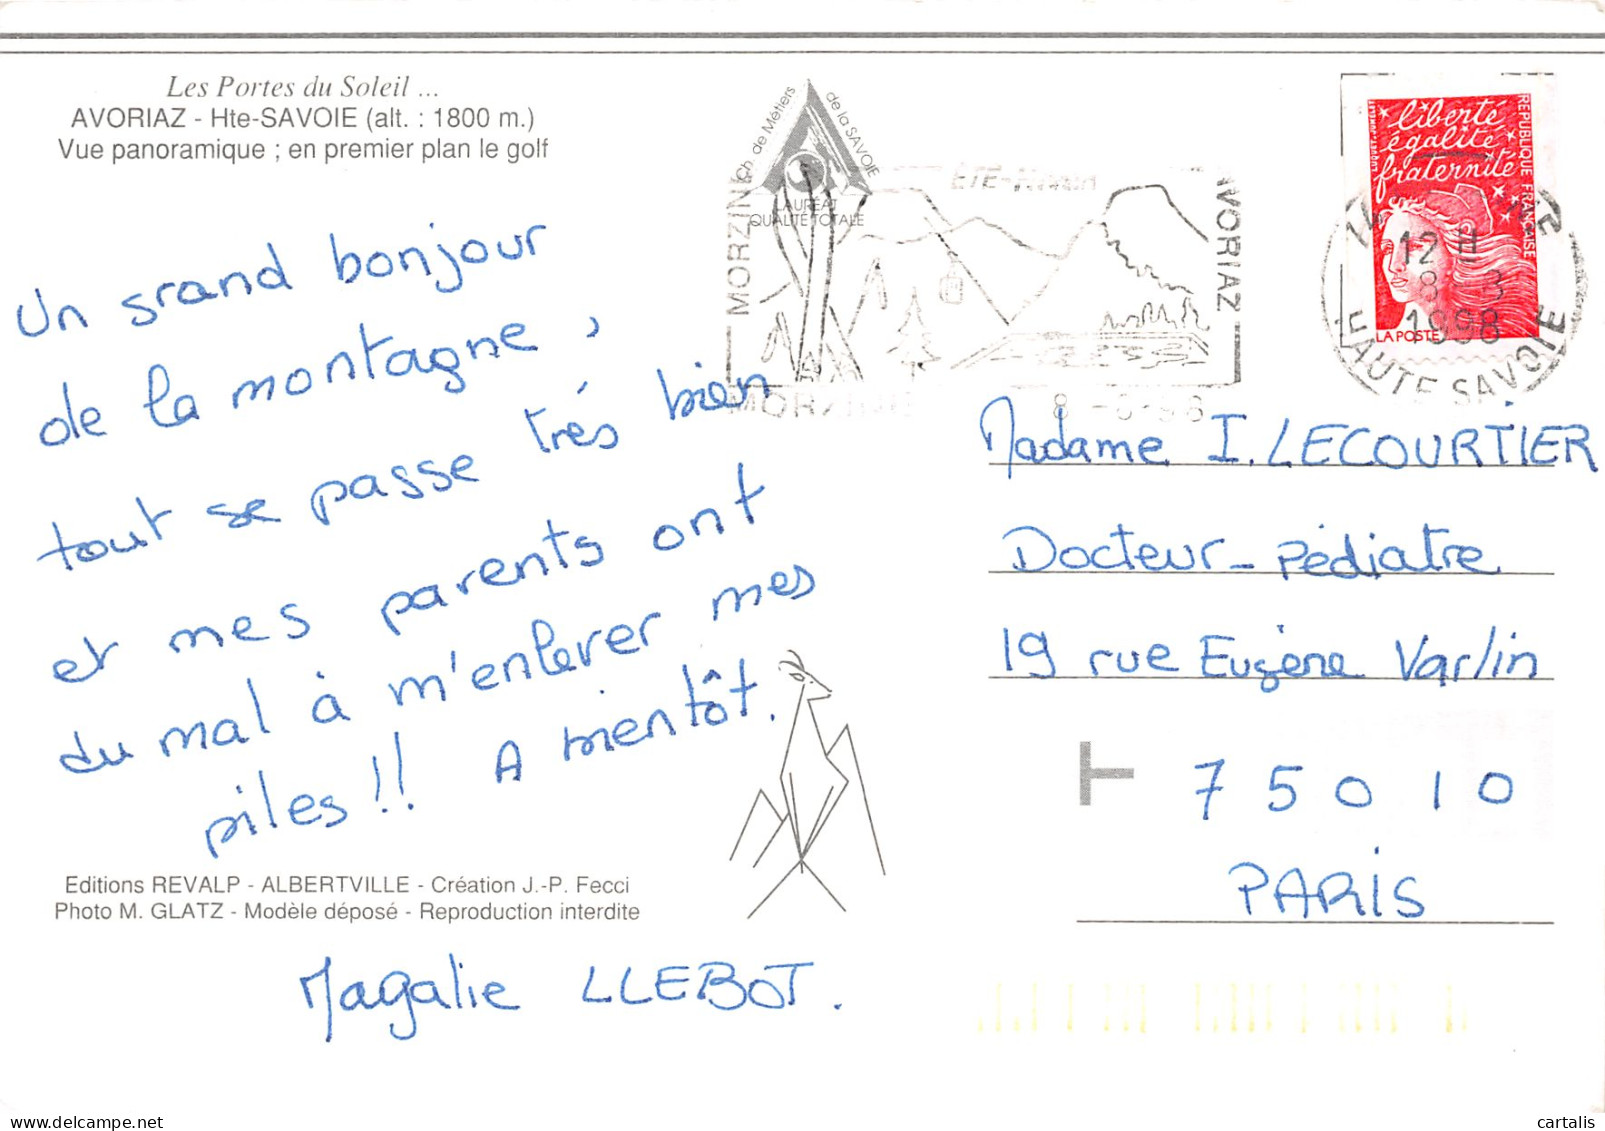 Les Portes du Soleil ...
AVORIAZ - Hte-SAVOIE (alt. : 1800 m.)
Vue panoramique ; en premier plan le golf
Un grand bonjour
de la montagne,
tout se passe trés bien
et mes parents ont
du mal à m'enlever mes
piles !! A bientôt.
Editions REVALP - ALBERTVILLE - Création J.-P. Fecci
Photo M. GLATZ - Modèle déposé - Reproduction interdite
Magalie LLEBOT.
Ch. de Métiers de la SAVOIE
LAURÉAT
QUALITÉ TOTALE
MORZINE
AVORIAZ
ETE-
MORZINE
liberté
égalité
fraternité
REPUBLIQUE FRANÇAISE
LA POSTE
12 H
8 3
1998
HAUTE SAVOIE
Madame I. LECOURTIER
Docteur - Pédiatre
19 rue Eugène Varlin
75010
PARIS
cartalis